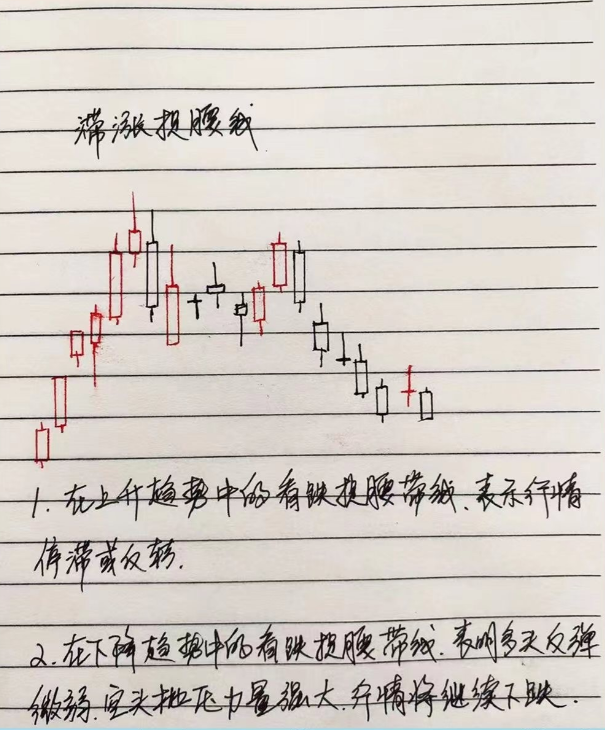 滞涨捉腰线
1. 在上升趋势中的看跌捉腰带线、表示行情
停滞或反转.
2. 在下降趋势中的看跌捉腰带线、表明多头反弹
微弱、空头抛压力量强大、行情将继续下跌.